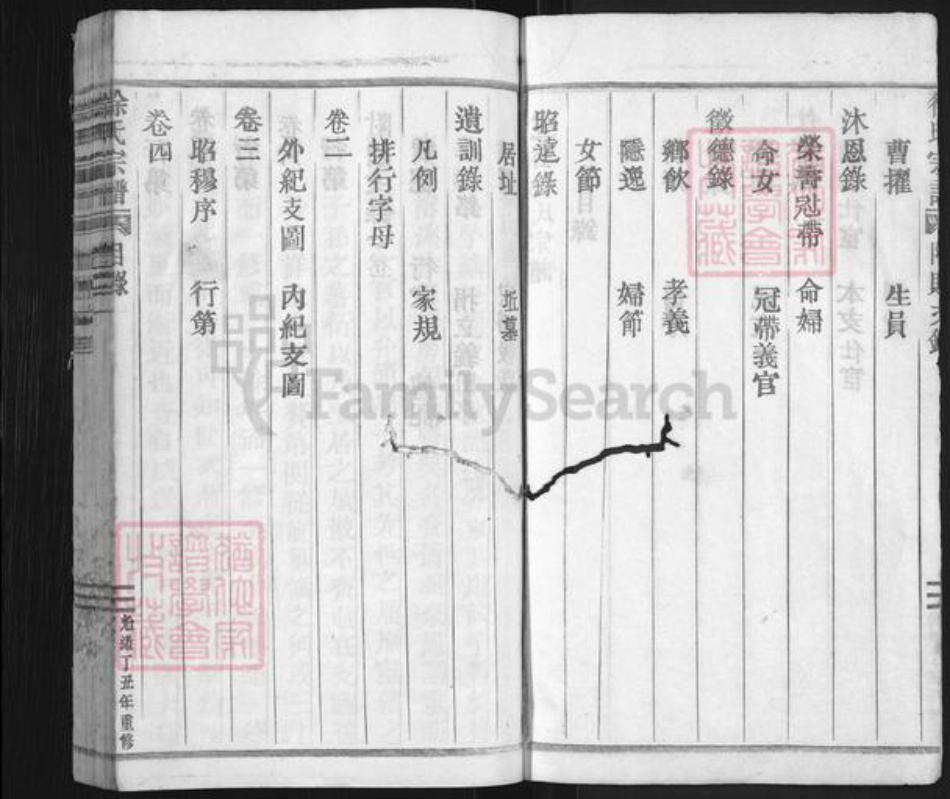 曹擢　生員
沐恩錄
榮壽冠帶　命婦
命女　冠帶義官
徵德錄
鄉飲　孝義
隱逸　婦節
女節
昭遠錄
居址　坵墓
遺訓錄
凡例　家規
排行字母
卷二
外紀支圖　內紀支圖
卷三
昭穆序　行第
卷四
徐氏宗譜　目錄
丁丑年重修
FamilySearch